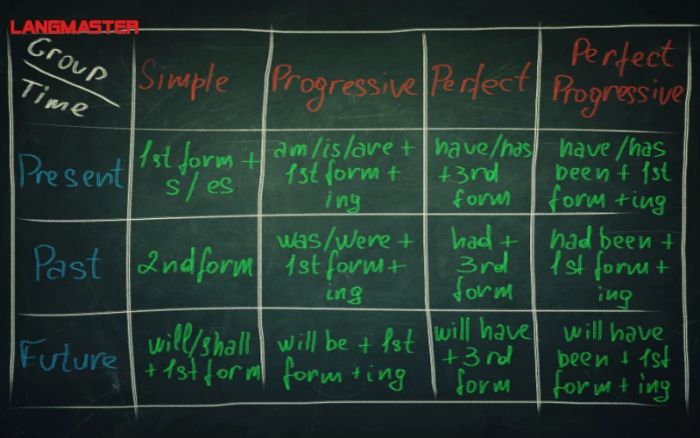 LANGMASTER
Group
Time
Simple
Progressive
Perfect
Perfect
Progressive
Present
1st form +
s/es
am/is/are +
1st form +
ing
have/has
+3rd
form
have/has
been + 1st
form +ing
Past
2nd form
was/were +
1st form +
ing
had +
3rd
form
had been +
1st form +
ing
Future
will/shall
+ 1st form
will be + 1st
form +ing
will have
+3rd
form
will have
been + 1st
form + ing